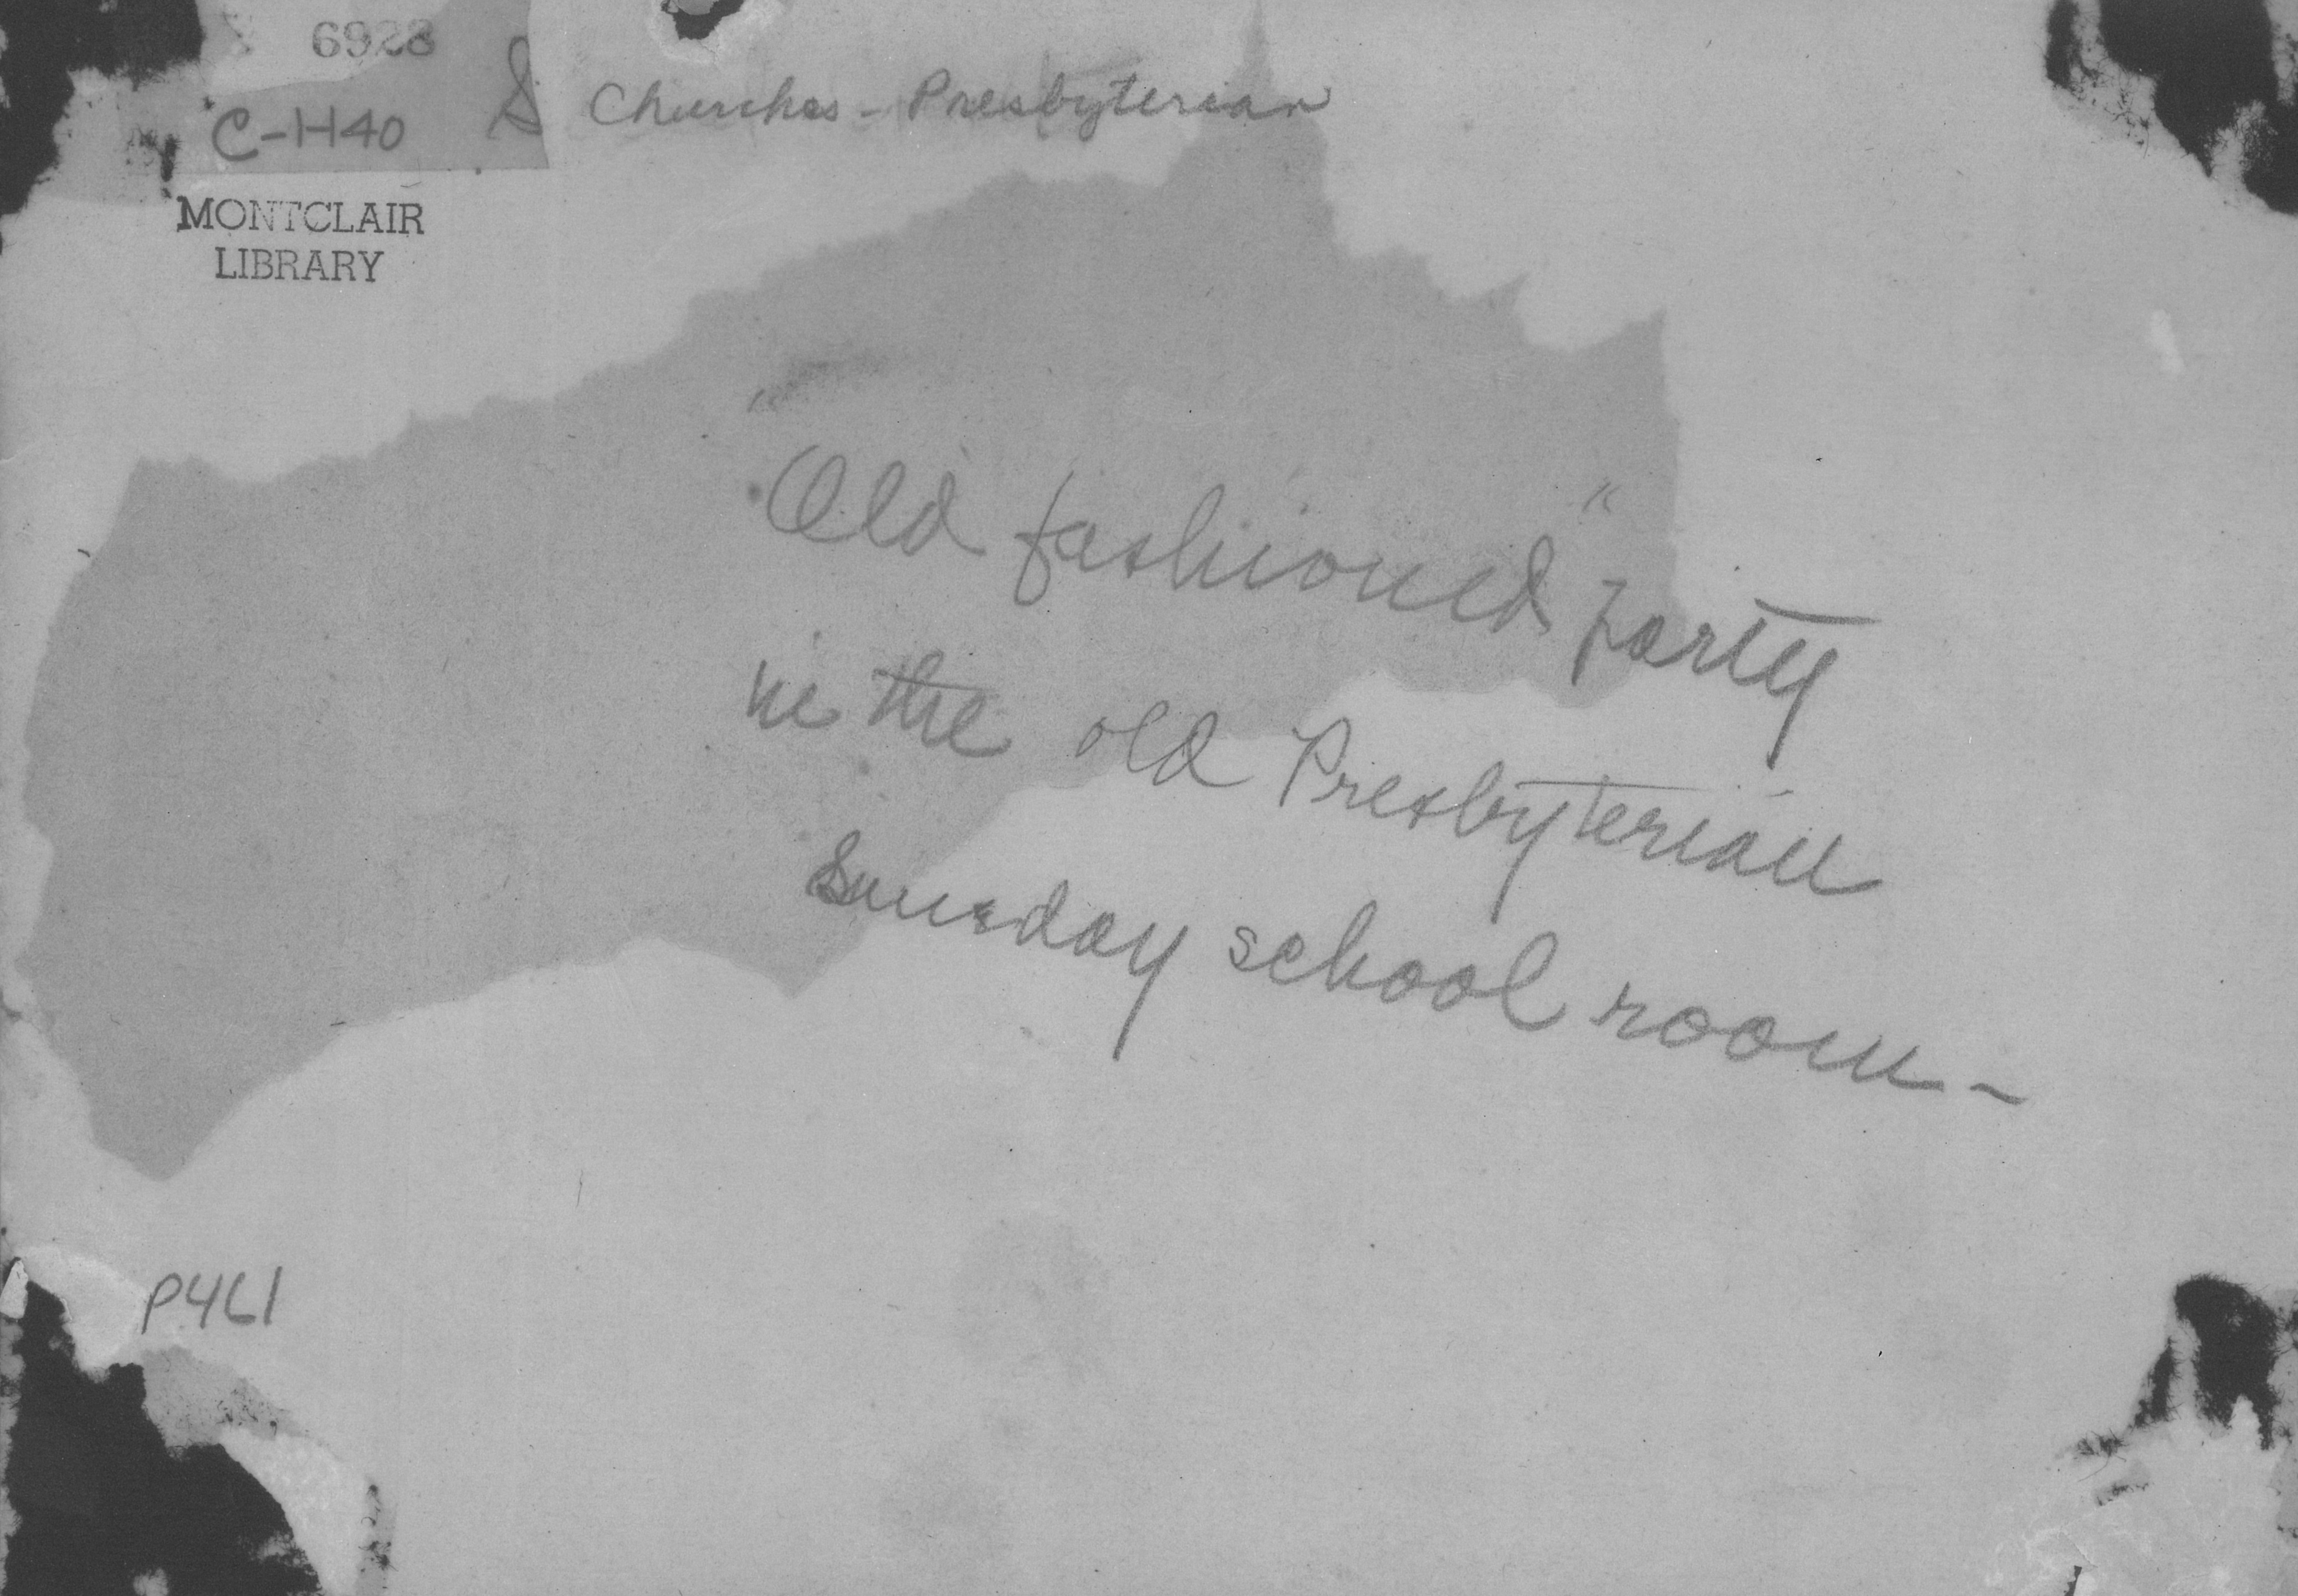 6923
C-H40
S Churches - Presbyterian
MONTCLAIR
LIBRARY
"Old fashioned" party
in the old Presbyterian
Sunday school room -
P4L1